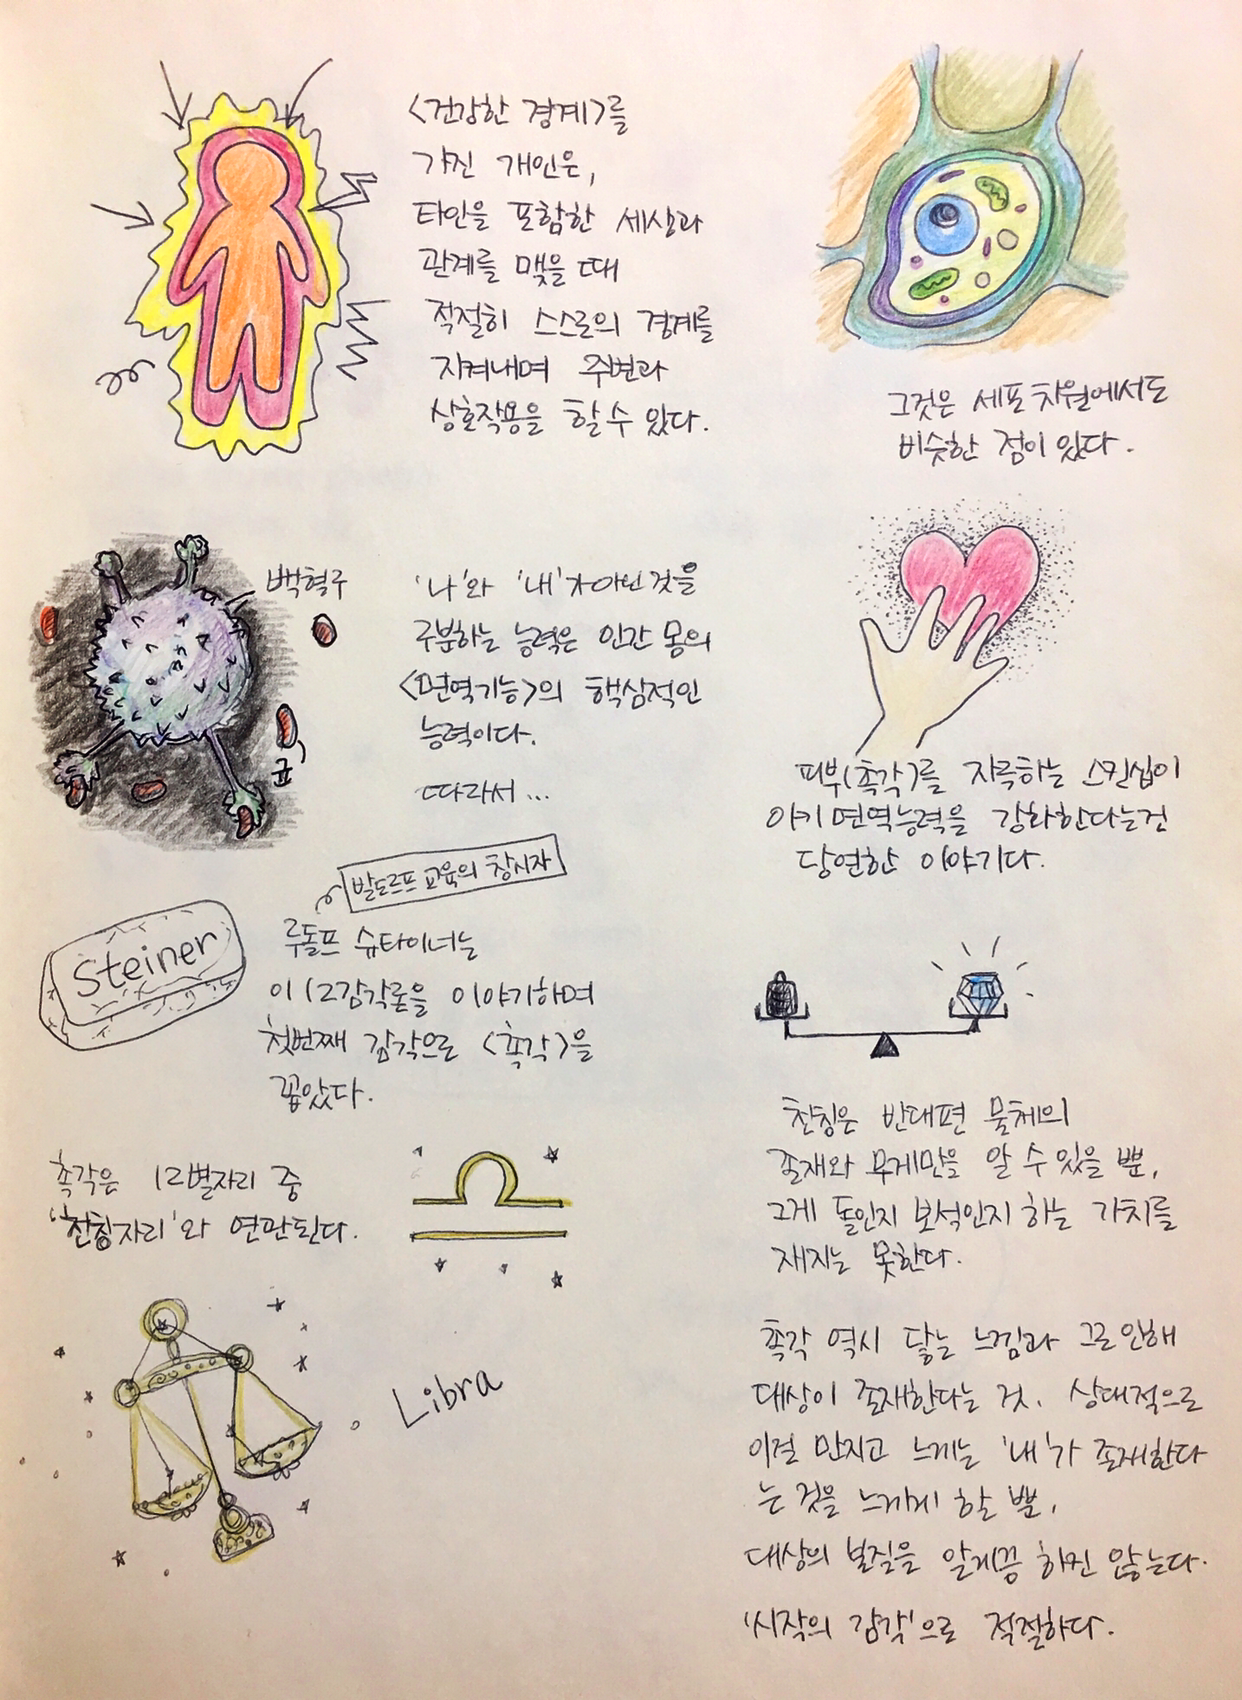 <건강한 경계>를
가진 개인은,
타인을 포함한 세상과
관계를 맺을 때
적절히 스스로의 경계를
지켜내며 주변과
상호작용을 할 수 있다.
그것은 세포 차원에서도
비슷한 점이 있다.
백혈구
균
'나'와 '내'가 아닌 것을
구분하는 능력은 인간 몸의
<면역기능>의 핵심적인
능력이다.
따라서...
피부(촉각)를 자극하는 스킨십이
아기 면역능력을 강화한다는건
당연한 이야기다.
발도르프 교육의 창시자
Steiner
루돌프 슈타이너는
이 12감각론을 이야기하며
첫번째 감각으로 <촉각>을
꼽았다.
촉각은 12별자리 중
'천칭자리'와 연관된다.
Libra
천칭은 반대편 물체의
존재와 무게만을 알 수 있을 뿐,
그게 돌인지 보석인지 하는 가치를
재지는 못한다.
촉각 역시 닿는 느낌과 그로 인해
대상이 존재한다는 것. 상대적으로
이걸 만지고 느끼는 '내'가 존재한다
는 것을 느끼게 할 뿐,
대상의 본질을 알게끔 하진 않는다.
'시작의 감각'으로 적절하다.